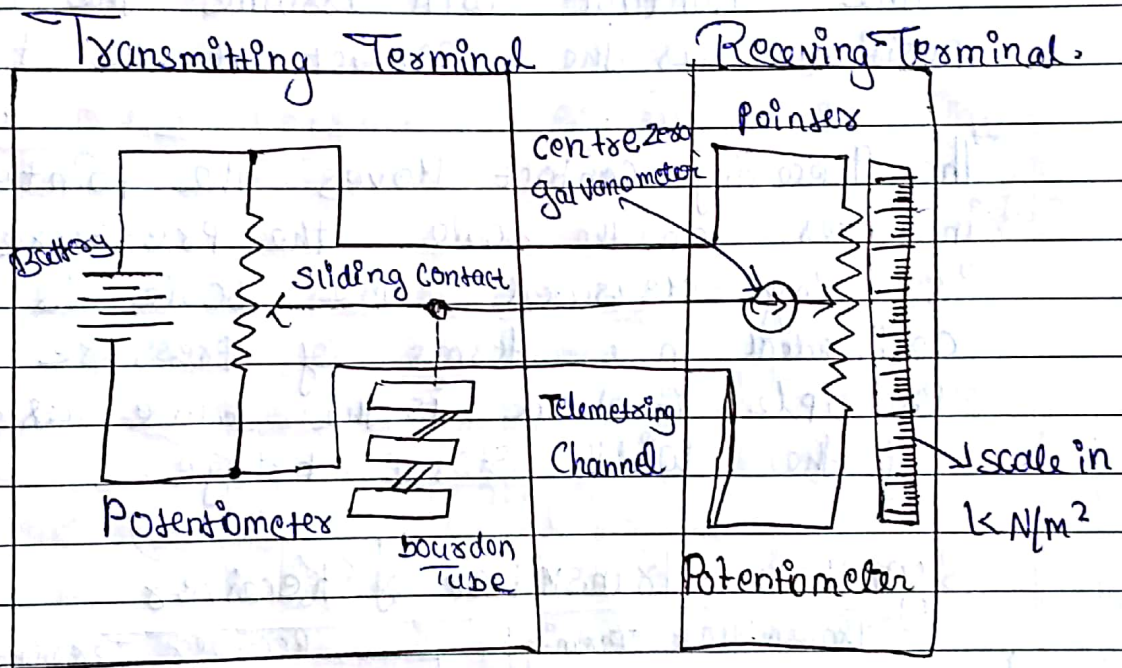 Transmitting Terminal
Receving Terminal.
Pointer
Centre Zero
galvanometer
Battery
Sliding Contact
Telemetring
Channel
scale in
kN/m²
Potentiometer
bourdon
Tube
Potentiometer